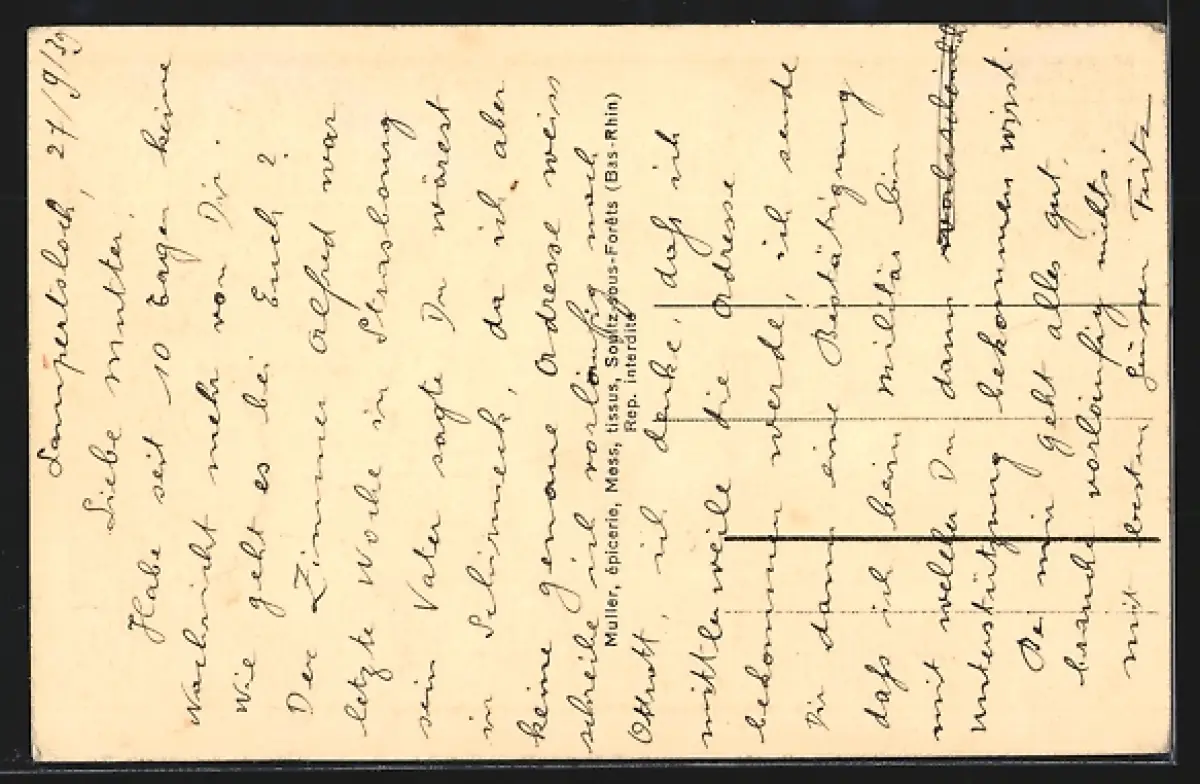 Lampertsloch, 27/9/39
Liebe Mutter!
Habe seit 10 Tagen keine
Nachricht mehr von Dir.
Wie geht es bei Euch?
Der Zimmer Alfred war
letzte Woche in Strassbourg
sein Vater sagte Du wärest
in Schirmeck, da ich aber
keine genaue Adresse weiss
schreibe ich vorläufig nach
Muller, épicerie, Mess, tissus, Soultz-sous-Forêts (Bas-Rhin)
Rep. interdite
Ottrott, ich denke, daſs ich
mittlerweile die Adresse
bekommen werde, ich sende
Dir dann eine Bestätigung
daſs ich beim Militär bin
mit welcher Du dann
Unterstützung bekommen wirst.
Bei mir geht alles gut,
brauche vorläufig nichts.
mit besten Grüssen Fritz